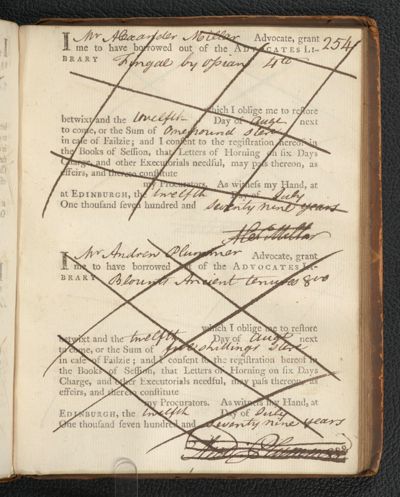 254
I Mr Alexander Millar Advocate, grant
me to have borrowed out of the ADVOCATES LI-
BRARY Fingal by Ossian 4to
which I oblige me to reſtore
betwixt and the twelfth Day of Augt next
to come, or the Sum of One pound Sterl
in caſe of Failzie; and I conſent to the regiſtration hereof in
the Books of Seſſion, that Letters of Horning on ſix Days
Charge, and other Executorials needful, may paſs thereon, as
effeirs, and thereto conſtitute
my Procurators. As witneſs my Hand, at
at EDINBURGH, the twelfth Day of July
One thouſand ſeven hundred and Seventy nine years
Alexr Millar
I Mr Andrew Plummer Advocate, grant
me to have borrowed out of the ADVOCATES LI-
BRARY Blounts Ancient tenures 8vo
which I oblige me to reſtore
betwixt and the twelfth Day of Augt next
to come, or the Sum of shillings Sterl
in caſe of Failzie; and I conſent to the regiſtration hereof in
the Books of Seſſion, that Letters of Horning on ſix Days
Charge, and other Executorials needful, may paſs thereon, as
effeirs, and thereto conſtitute
my Procurators. As witneſs my Hand, at
EDINBURGH, the twelfth Day of July
One thouſand ſeven hundred and Seventy nine years
Andw Plummer